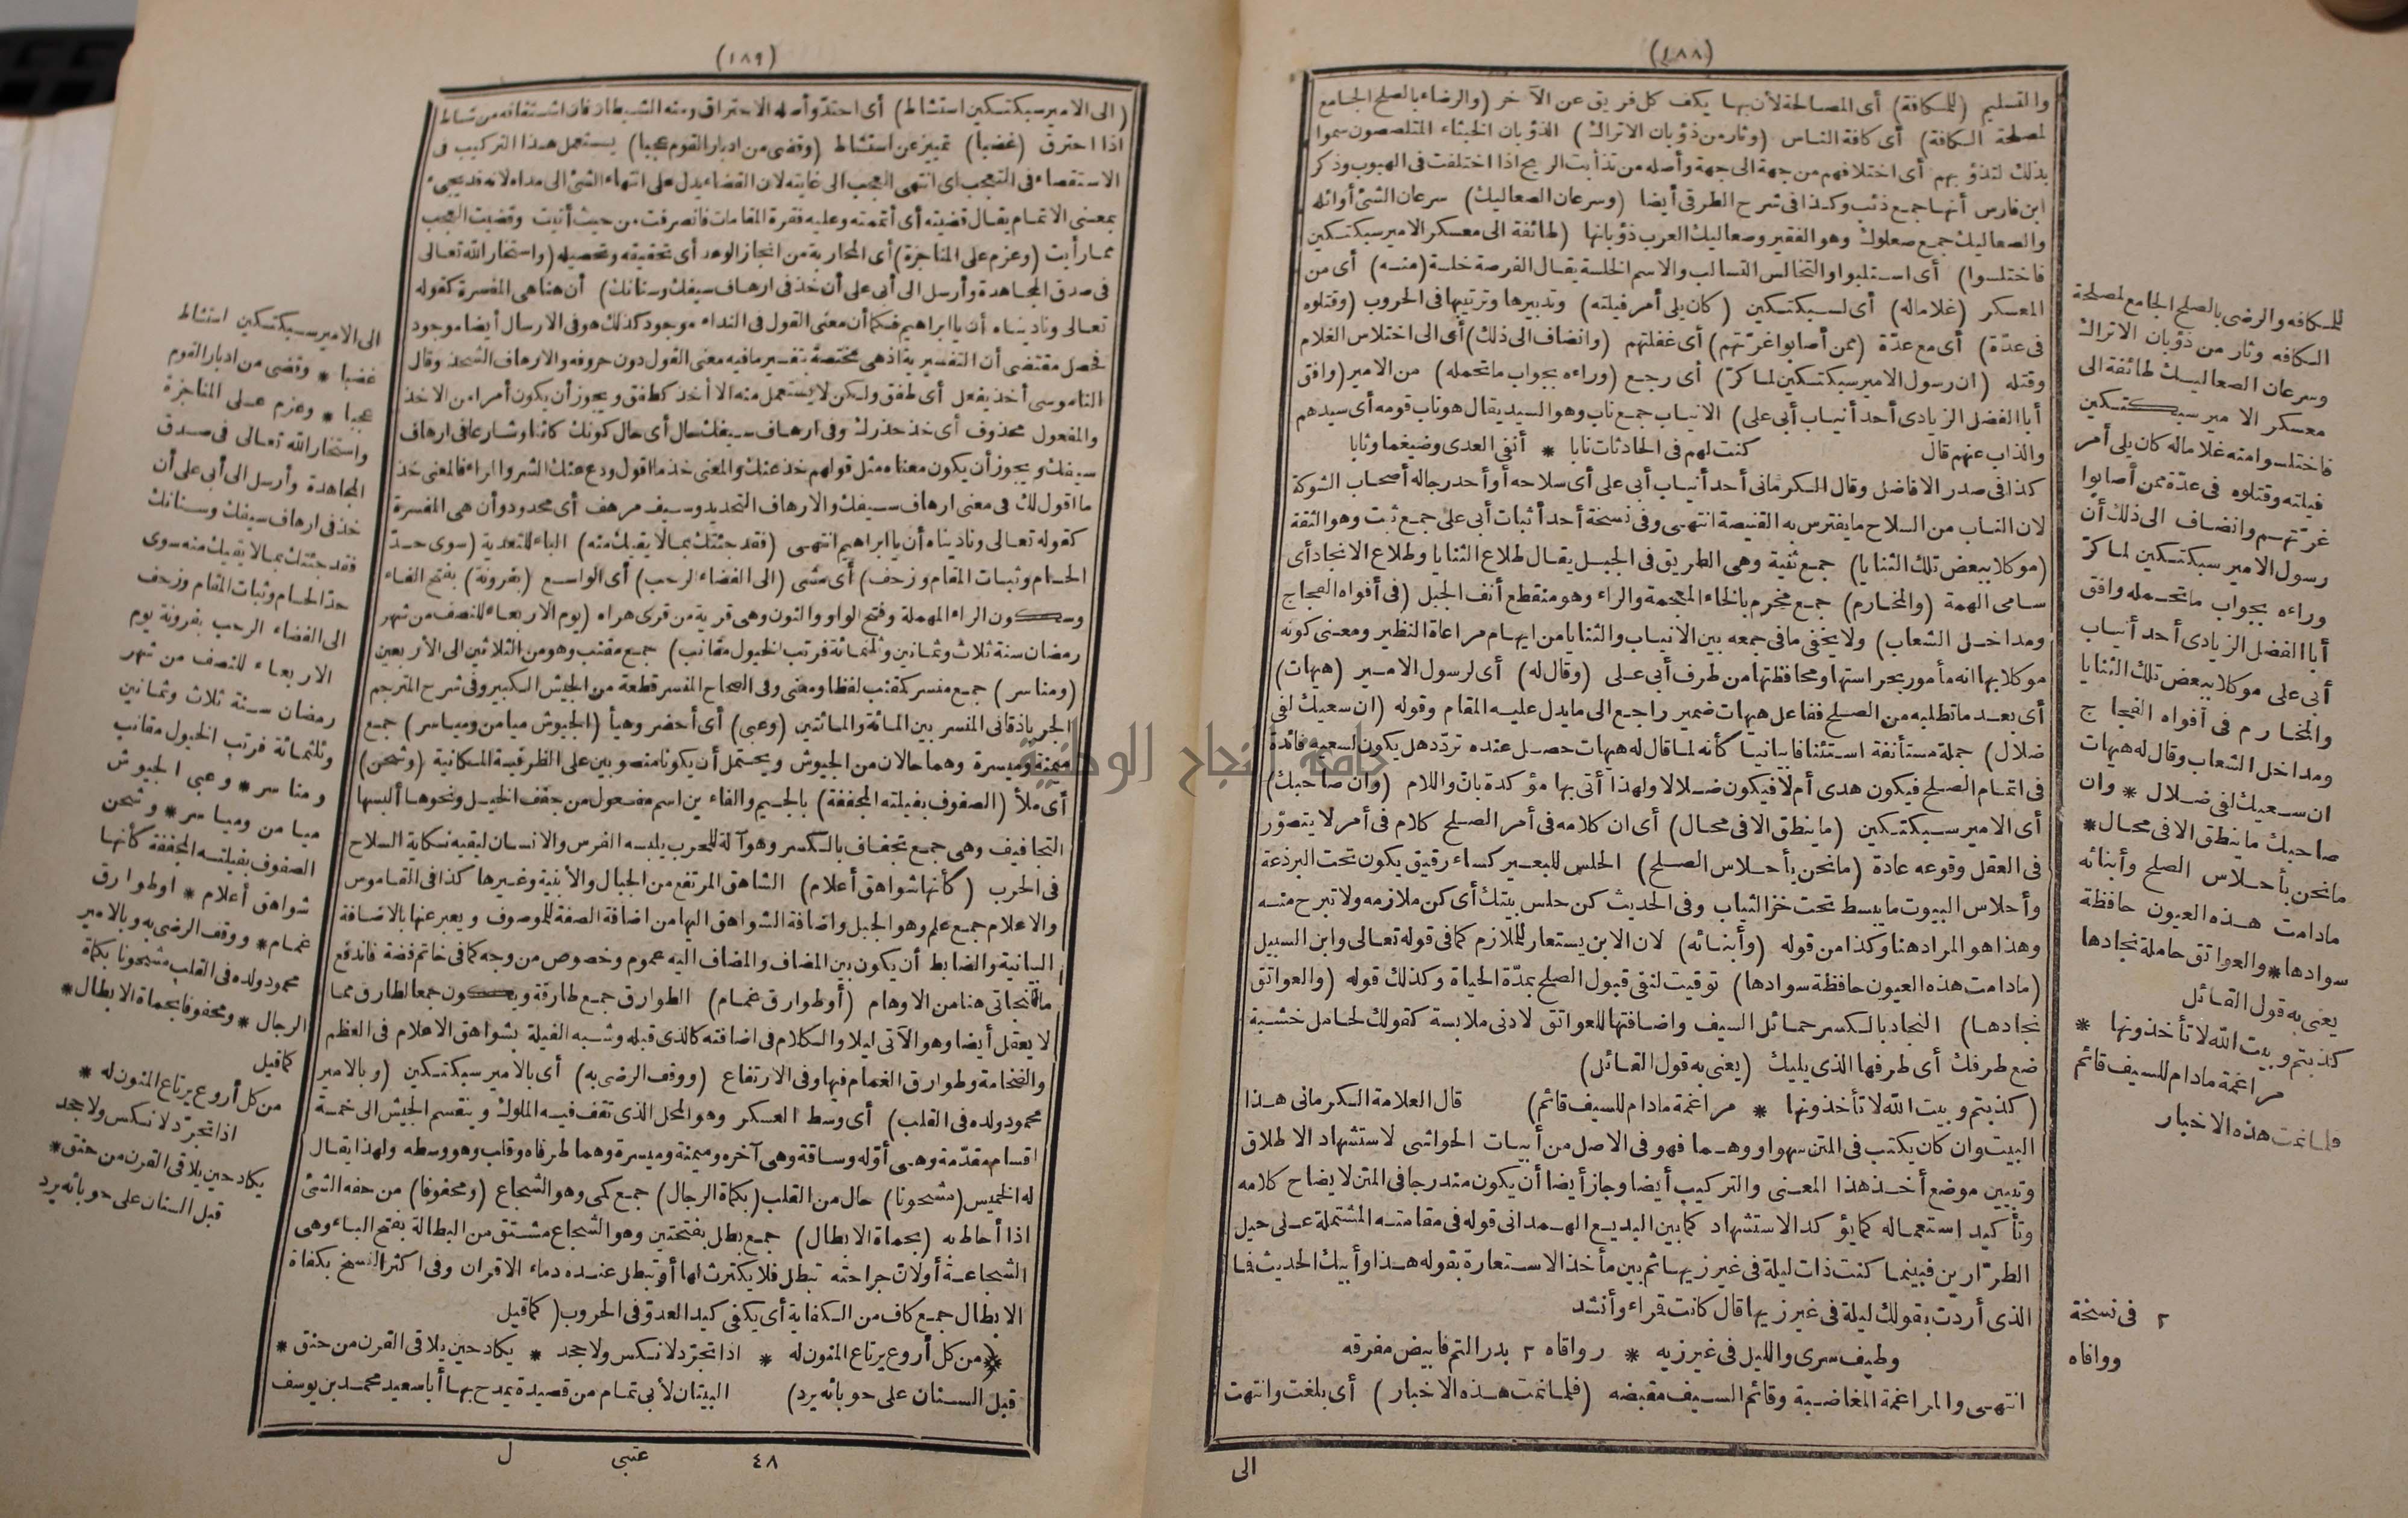 (١٨٨)
والتسليم (للمكافة) أى المصالحة لأن بها يكف كل فريق عن الآخر (والرضاء بالصلح الجامع
لمصلحة الكافة) أى كافة الناس (وثار من ذؤبان الاتراك) الذؤبان الخبثاء المتلصصون سموا
بذلك لتذؤبهم أى اختلافهم من جهة الى جهة وأصله من تذأبت الريح اذا اختلفت فى الهبوب وذكر
ابن فارس أنها جمع ذئب وكذا فى شرح الطرقى أيضا (وسرعان الصعاليك) سرعان الشئ أوائله
والصعاليك جمع صعلوك وهو الفقير وصعاليك العرب ذؤبانها (طائفة الى معسكر الامير سبكتكين
فاختلسوا) أى استلبوا والتخالس التسالب والاسم الخلسة يقال الفرصة خلسة (منه) أى من
المعسكر (غلاماله) أى لسبكتكين (كان يلى أمر فيلته) وتدبيرها وترتيبها فى الحروب (وقتلوه
فى عدّة) أى مع عدّة (ممن أصابوا غرّتهم) أى غفلتهم (وانضاف الى ذلك) أى الى اختلاس الغلام
وقتله (ان رسول الامير سبكتكين لما كرّ) أى رجع (وراءه بجواب ما تحمله) من الامير (وافق
أبا الفضل الزيادى أحد أنياب أبى على) الانياب جمع ناب وهو السيد يقال هو ناب قومه أى سيدهم
والذاب عنهم قال كنت لهم فى الحادثات نابا * أنفى العدى وضيغما وثابا
كذا فى صدر الافاضل وقال الكرمانى أحد أنياب أبى على أى سلاحه أو أحد رجاله أصحاب الشوكة
لان الناب من السلاح ما يفترس به القنيصة انتهى وفى نسخة أحد أثبات أبى على جمع ثبت وهو الثقة
(موكلا ببعض تلك الثنايا) جمع ثنية وهى الطريق فى الجبل يقال طلاع الثنايا وطلاع الانجاد أى
سامى الهمة (والمخارم) جمع مخرم بالخاء المعجمة والراء وهو منقطع أنف الجبل (فى أفواه الفجاج
ومداخل الشعاب) ولا يخفى ما فى جمعه بين الانياب والثنايا من ايهام مراعاة النظير ومعنى كونه
موكلا بها انه مأمور بحراستها ومحافظتها من طرف أبى على (وقال له) أى لرسول الامير (هيهات)
أى بعد ما تطلبه من الصلح ففاعل هيهات ضمير راجع الى ما يدل عليه المقام وقوله (ان سعيك لفى
ضلال) جملة مستأنفة استئنافا بيانيا كأنه لما قال له هيهات حصل عنده تردّد هل يكون لسعيه فائدة
فى اتمام الصلح فيكون هدى أم لا فيكون ضلالا ولهذا أتى بها مؤكدة بان واللام (وان صاحبك)
أى الامير سبكتكين (ما ينطق الا فى محال) أى ان كلامه فى أمر الصلح كلام فى أمر لا يتصوّر
فى العقل وقوعه عادة (ما نحن بأحلاس الصلح) الحلس للبعير كساء رقيق يكون تحت البرذعة
وأحلاس البيوت ما يبسط تحت خز الثياب وفى الحديث كن حلس بيتك أى كن ملازمه ولا تبرح منه
وهذا هو المراد هنا وكذا من قوله (وأبنائه) لان الابن يستعار للملازم كما فى قوله تعالى وابن السبيل
(مادامت هذه العيون حافظة سوادها) توقيت لنفى قبول الصلح بمدّة الحياة وكذلك قوله (والعواتق
نجادها) النجاد بالكسر حمائل السيف واضافتها للعواتق لادنى ملابسة كقولك لحامل خشبة
ضع طرفك أى طرفها الذى يليك (يعنى به قول القائل)
(كذبتم وبيت الله لا تأخذونها * مراغمة مادام للسيف قائم) قال العلامة الكرمانى هذا
البيت وان كان يكتب فى المتن سهوا ووهما فهو فى الاصل من أبيات الحواشى لاستشهاد الاطلاق
وتبيين موضع أخذ هذا المعنى والتركيب أيضا وجاز أيضا أن يكون مندرجا فى المتن لايضاح كلامه
وتأكيد استعماله كما يؤكد الاستشهاد كما بين البديع الهمدانى قوله فى مقامته المشتملة على حيل
الطرّارين فبينما كنت ذات ليلة فى غير زيها ثم بين مأخذ الاستعارة بقوله هذا وأبيك الحديث فما
الذى أردت بقولك ليلة فى غير زيها قال كانت قراء وأنشد
وطيف سرى والليل فى غير زيه * رواقاه ٢ بدر التم فابيض مفرقه
انتهى والمراغمة المغاضبة وقائم السيف مقبضه (فلما تمت هذه الاخبار) أى بلغت وانتهت
الى
للمكافه والرضى بالصلح الجامع لمصلحة
الكافه وثار من ذؤبان الاتراك
وسرعان الصعاليك طائفة الى
معسكر الامير سبكتكين
فاختلسوا منه غلاماله كان يلى أمر
فيلته وقتلوه فى عدّة ممن أصابوا
غرّتهم وانضاف الى ذلك أن
رسول الامير سبكتكين لما كرّ
وراءه بجواب ما تحمله وافق
أبا الفضل الزيادى أحد أنياب
أبى على موكلا ببعض تلك الثنايا
والمخارم فى أفواه الفجاج
ومداخل الشعاب وقال له هيهات
ان سعيك لفى ضلال * وان
صاحبك ما ينطق الا فى محال *
ما نحن بأحلاس الصلح وأبنائه
مادامت هذه العيون حافظة
سوادها * والعواتق حاملة نجادها
يعنى به قول القائل
كذبتم وبيت الله لا تأخذونها *
مراغمة مادام للسيف قائم
فلما تمت هذه الاخبار
٢ فى نسخة
ووافاه
(١٨٩)
(الى الامير سبكتكين استشاط) أى احتدّ وأصله الاحتراق ومنه الشيطان فان اشتقاقه من شاط
اذا احترق (غضبا) تمييز عن استشاط (وقضى من ادبار القوم عجبا) يستعمل هذا التركيب فى
الاستقصاء فى التعجب أى انتهى العجب الى غايته لان القضاء يدل على انتهاء الشئ الى مداه لانه قد يجىء
بمعنى الاتمام يقال قضيته أى أتممته وعليه فقرة المقامات فانصرفت من حيث أتيت وقضيت العجب
مما رأيت (وعزم على المناجزة) أى المحاربة من انجاز الوعد أى تحقيقه وتحصيله (واستخار الله تعالى
فى صدق المجاهدة وأرسل الى أبى على أن خذ فى ارهاف سيفك وسنانك) أن هنا هى المفسرة كقوله
تعالى وناديناه أن يا ابراهيم فكما أن معنى القول فى النداء موجود كذلك هو فى الارسال أيضا موجود
فحصل مقتضى أن التفسيرية اذ هى مختصة بتفسير ما فيه معنى القول دون حروفه والارهاف الشحذ وقال
الناموسى أخذ يفعل أى طفق ولكن لا يستعمل منه الا أخذ كطفق ويجوز أن يكون أمرا من الاخذ
والمفعول محذوف أى خذ حذرك وفى ارهاف سيفك حال أى حال كونك كائنا وشارعا فى ارهاف
سيفك ويجوز أن يكون معناه مثل قولهم خذ عنك والمعنى خذ ما اقول ودع عنك الشر والمراء فالمعنى خذ
ما اقول لك فى معنى ارهاف سيفك والارهاف التحديد وسيف مرهف أى محدود وأن هى المفسرة
كقوله تعالى وناديناه أن يا ابراهيم انتهى (فقد جئتك بما لا يقيك منه) الباء للتعدية (سوى حدّ
الحسام وثبات المقام وزحف) أى مشى (الى الفضاء الرحب) أى الواسع (بفرونة) بفتح الفاء
وسكون الراء المهملة وفتح الواو والنون وهى قرية من قرى هراه (يوم الاربعاء للنصف من شهر
رمضان سنة ثلاث وثمانين وثلثمائة فرتب الخيول مقانب) جمع مقنب وهو من الثلاثين الى الأربعين
(ومناسر) جمع منسر كمقنب لفظا ومعنى وفى الصحاح المنسر قطعة من الجيش الكبير وفى شرح المترجم
الجرباذقانى المنسر بين المائة والمائتين (وعبى) أى أحضر وهيأ (الجيوش ميامن ومياسر) جمع
ميمنة وميسرة وهما حالان من الجيوش ويحتمل أن يكونا منصوبين على الظرفية المكانية (وشحن)
أى ملأ (الصفوف بفيلته المجففة) بالجيم والفاءين اسم مفعول من جفف الخيل ونحوها ألبسها
التجافيف وهى جمع تجفاف بالكسر وهو آلة للحرب يلبسه الفرس والانسان ليقيه نكاية السلاح
فى الحرب (كأنها شواهق أعلام) الشاهق المرتفع من الجبال والأبنية وغيرها كذا فى القاموس
والاعلام جمع علم وهو الجبل واضافة الشواهق اليها من اضافة الصفة للموصوف ويعبر عنها بالاضافة
البيانية والضابط أن يكون بين المضاف والمضاف اليه عموم وخصوص من وجه كما فى خاتم فضة فاندفع
ما للنجاتى هنا من الاوهام (أو طوارق غمام) الطوارق جمع طارقة ويكون جمعا لطارق مما
لا يعقل أيضا وهو الآتى ليلا والكلام فى اضافته كالذى قبله وشبه الفيلة بشواهق الاعلام فى العظم
والضخامة وطوارق الغمام فيها وفى الارتفاع (ووقف الرضى به) أى بالامير سبكتكين (وبالامير
محمود ولده فى القلب) أى وسط العسكر وهو المحل الذى تقف فيه الملوك وينقسم الجيش الى خمسة
اقسام مقدّمة وهى أوّله وساقة وهى آخره وميمنة وميسرة وهما طرفاه وقلب وهو وسطه ولهذا يقال
له الخميس (مشحونا) حال من القلب (بكماة الرجال) جمع كمى وهو الشجاع (ومحفوفا) من حفه الشئ
اذا أحاط به (بحماة الابطال) جمع بطل بفتحتين وهو الشجاع مشتق من البطالة بفتح الباء وهى
الشجاعة أو لان جراحته تبطل فلا يكترث لها أو تبطل عنده دماء الاقران وفى اكثر النسخ بكفاة
الابطال جمع كاف من الكفاية أى يكفى كيد العدوّ فى الحروب (كما قيل
(من كل أروع يرتاع المنون له * اذا تجرّد لا نكس ولا جحد * يكاد حين يلاقى القرن من حنق *
قبل السنان على حوبائه يرد) البيتان لأبى تمام من قصيدة يمدح بها أبا سعيد محمد بن يوسف
٤٨ عتبى ل
الى الامير سبكتكين استشاط
غضبا * وقضى من ادبار القوم
عجبا * وعزم على المناجزة
واستخار الله تعالى فى صدق
المجاهدة وأرسل الى أبى على أن
خذ فى ارهاف سيفك وسنانك
فقد جئتك بما لا يقيك منه سوى
حدّ الحسام وثبات المقام وزحف
الى الفضاء الرحب بفرونة يوم
الاربعاء للنصف من شهر
رمضان سنة ثلاث وثمانين
وثلثمائة فرتب الخيول مقانب
ومناسر * وعبى الجيوش
ميامن ومياسر * وشحن
الصفوف بفيلته المجففة كأنها
شواهق أعلام * اوطوارق
غمام * ووقف الرضى به وبالامير
محمود ولده فى القلب مشحونا بكماة
الرجال * ومحفوفا بحماة الابطال *
كما قيل
من كل أروع يرتاع المنون له *
اذا تجرّد لا نكس ولا جحد
يكاد حين يلاقى القرن من حنق *
قبل السنان على حوبائه يرد
جامعة النجاح الوطنية